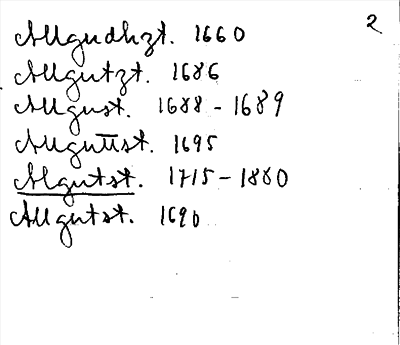 2
Allgudhzt. 1660
Allgutzt. 1686
Allgust. 1688 - 1689
Allguttst. 1695
Algutst. 1715 - 1880
Allgutst. 1690